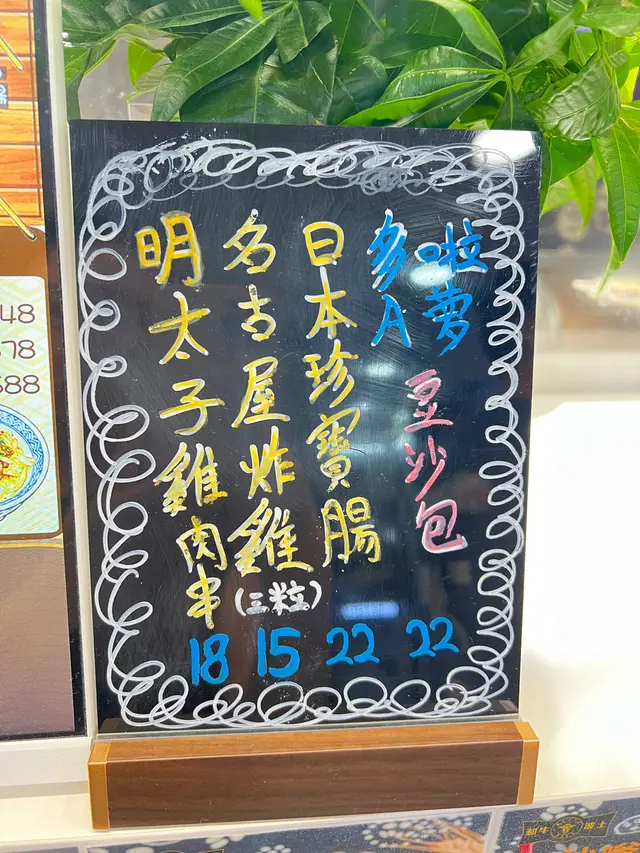 多啦
A夢
豆沙包
22
日本珍寶腸
22
名古屋炸雞
(三粒)
15
明太子雞肉串
18
48
78
88
和牛
波士